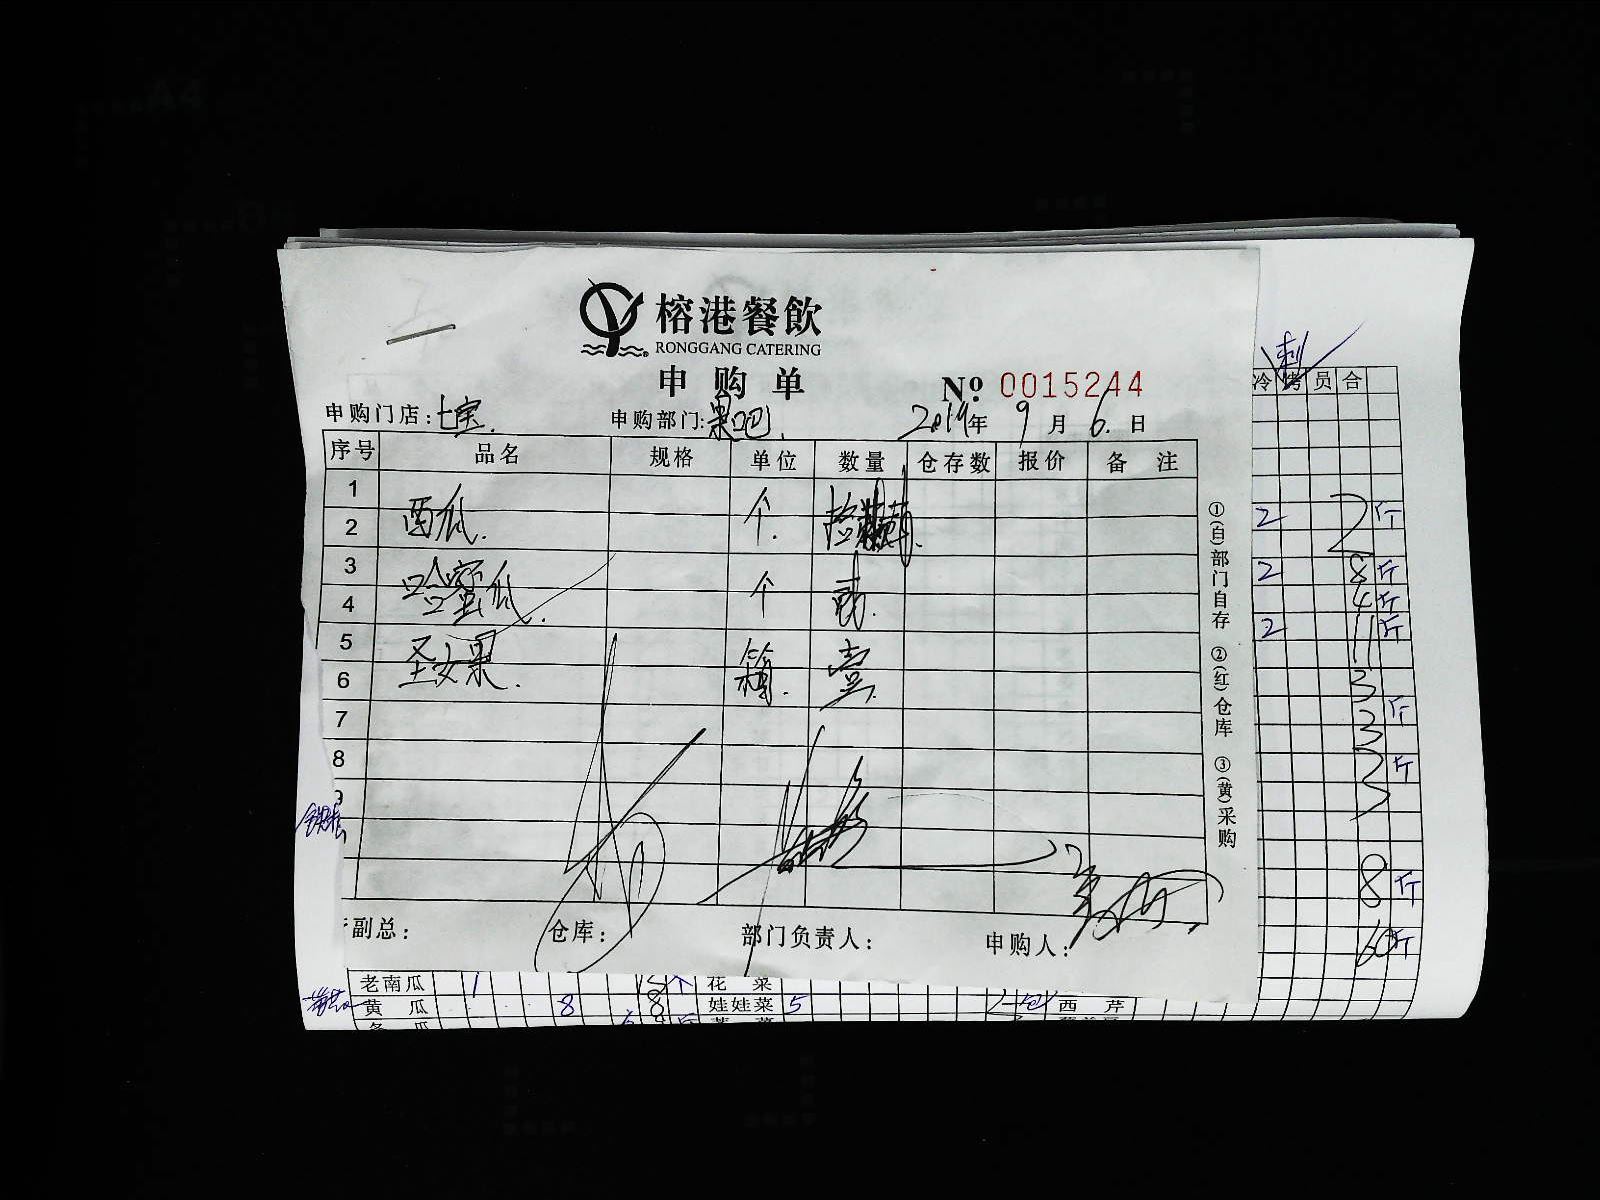 榕港餐飲
RONGGANG CATERING
申购单
No. 0015244
申购门店：七宝. 申购部门：果吧. 2019年 9月 6.日
序号 品名 规格 单位 数量 仓存数 报价 备注
1
2 西瓜. 个.
3
4 哈蜜瓜. 个 两.
5
6 圣女果. 箱. 壹.
7
8
副总： 仓库： 部门负责人： 申购人：
①(白)部门自存 ②(红)仓库 ③(黄)采购
冷 烤 员 合
2 2 斤
2 8 斤
4 斤
2 11 斤
3
3 斤
斤
8 斤
60 斤
老南瓜 1 个 花菜
黄瓜 8 8 娃娃菜 5 包 西芹